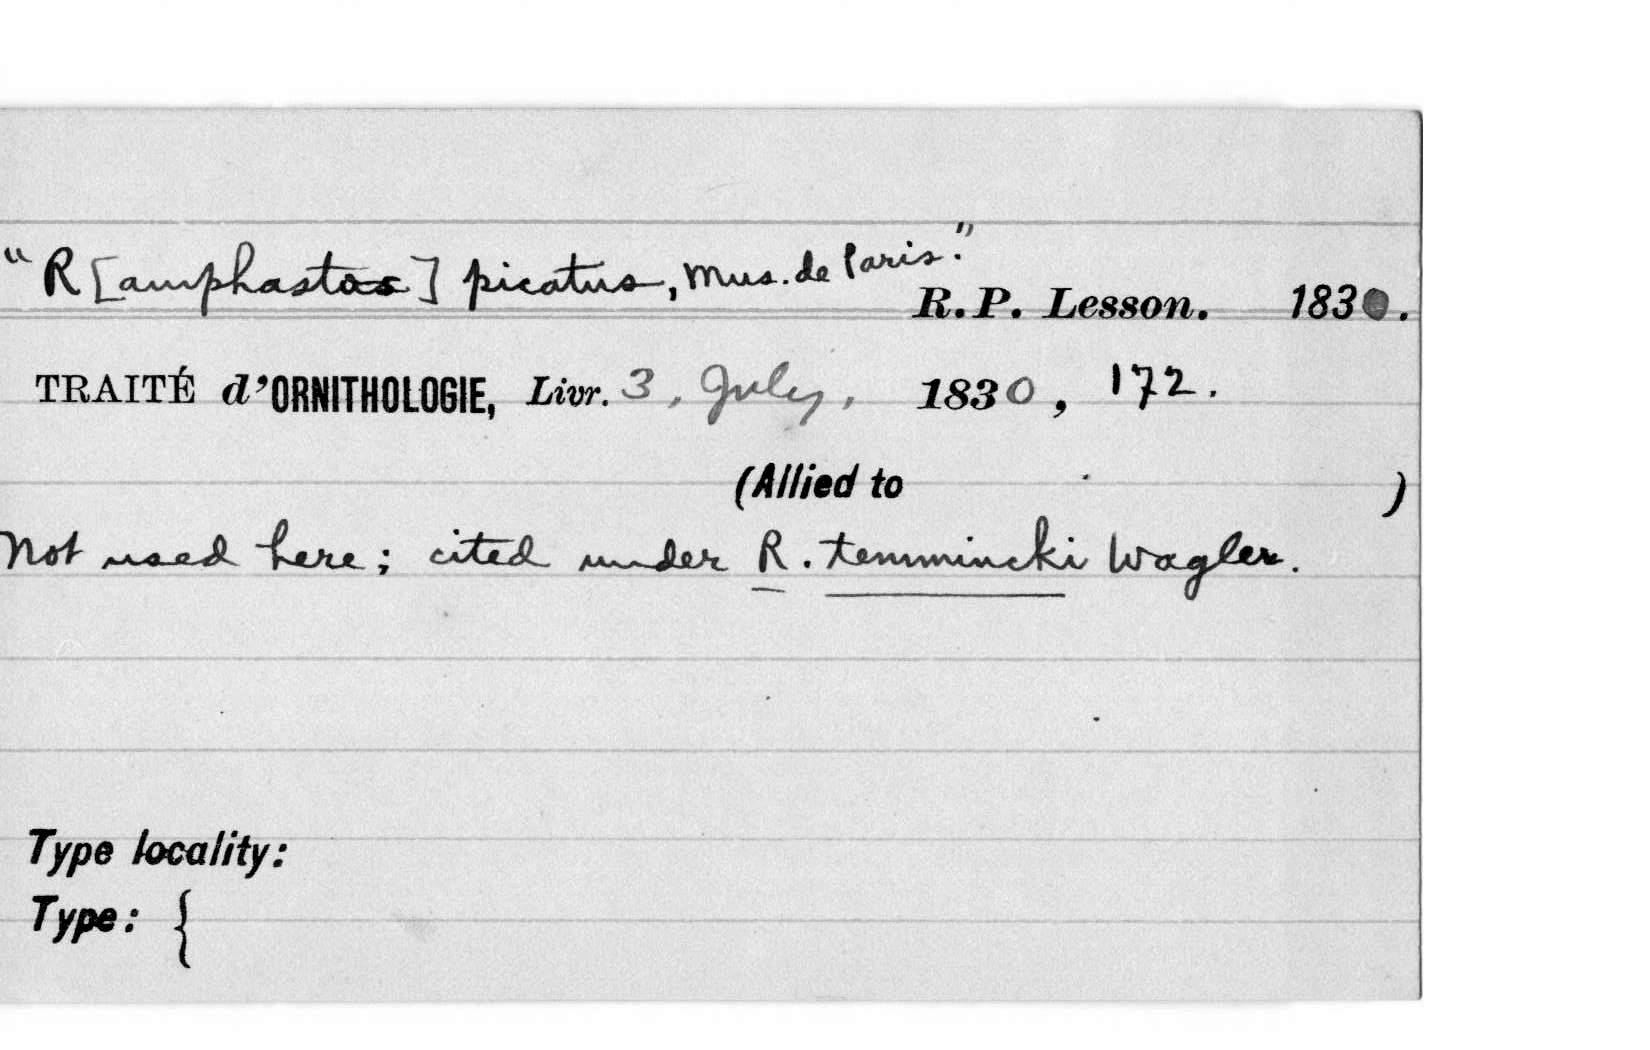 “R[amphastos] picatus, Mus. de Paris.”
R.P. Lesson. 1830.
TRAITÉ d’ORNITHOLOGIE, Livr. 3, July, 1830, 172.
(Allied to )
Not used here; cited under R. temmincki Wagler.
Type locality:
Type: {